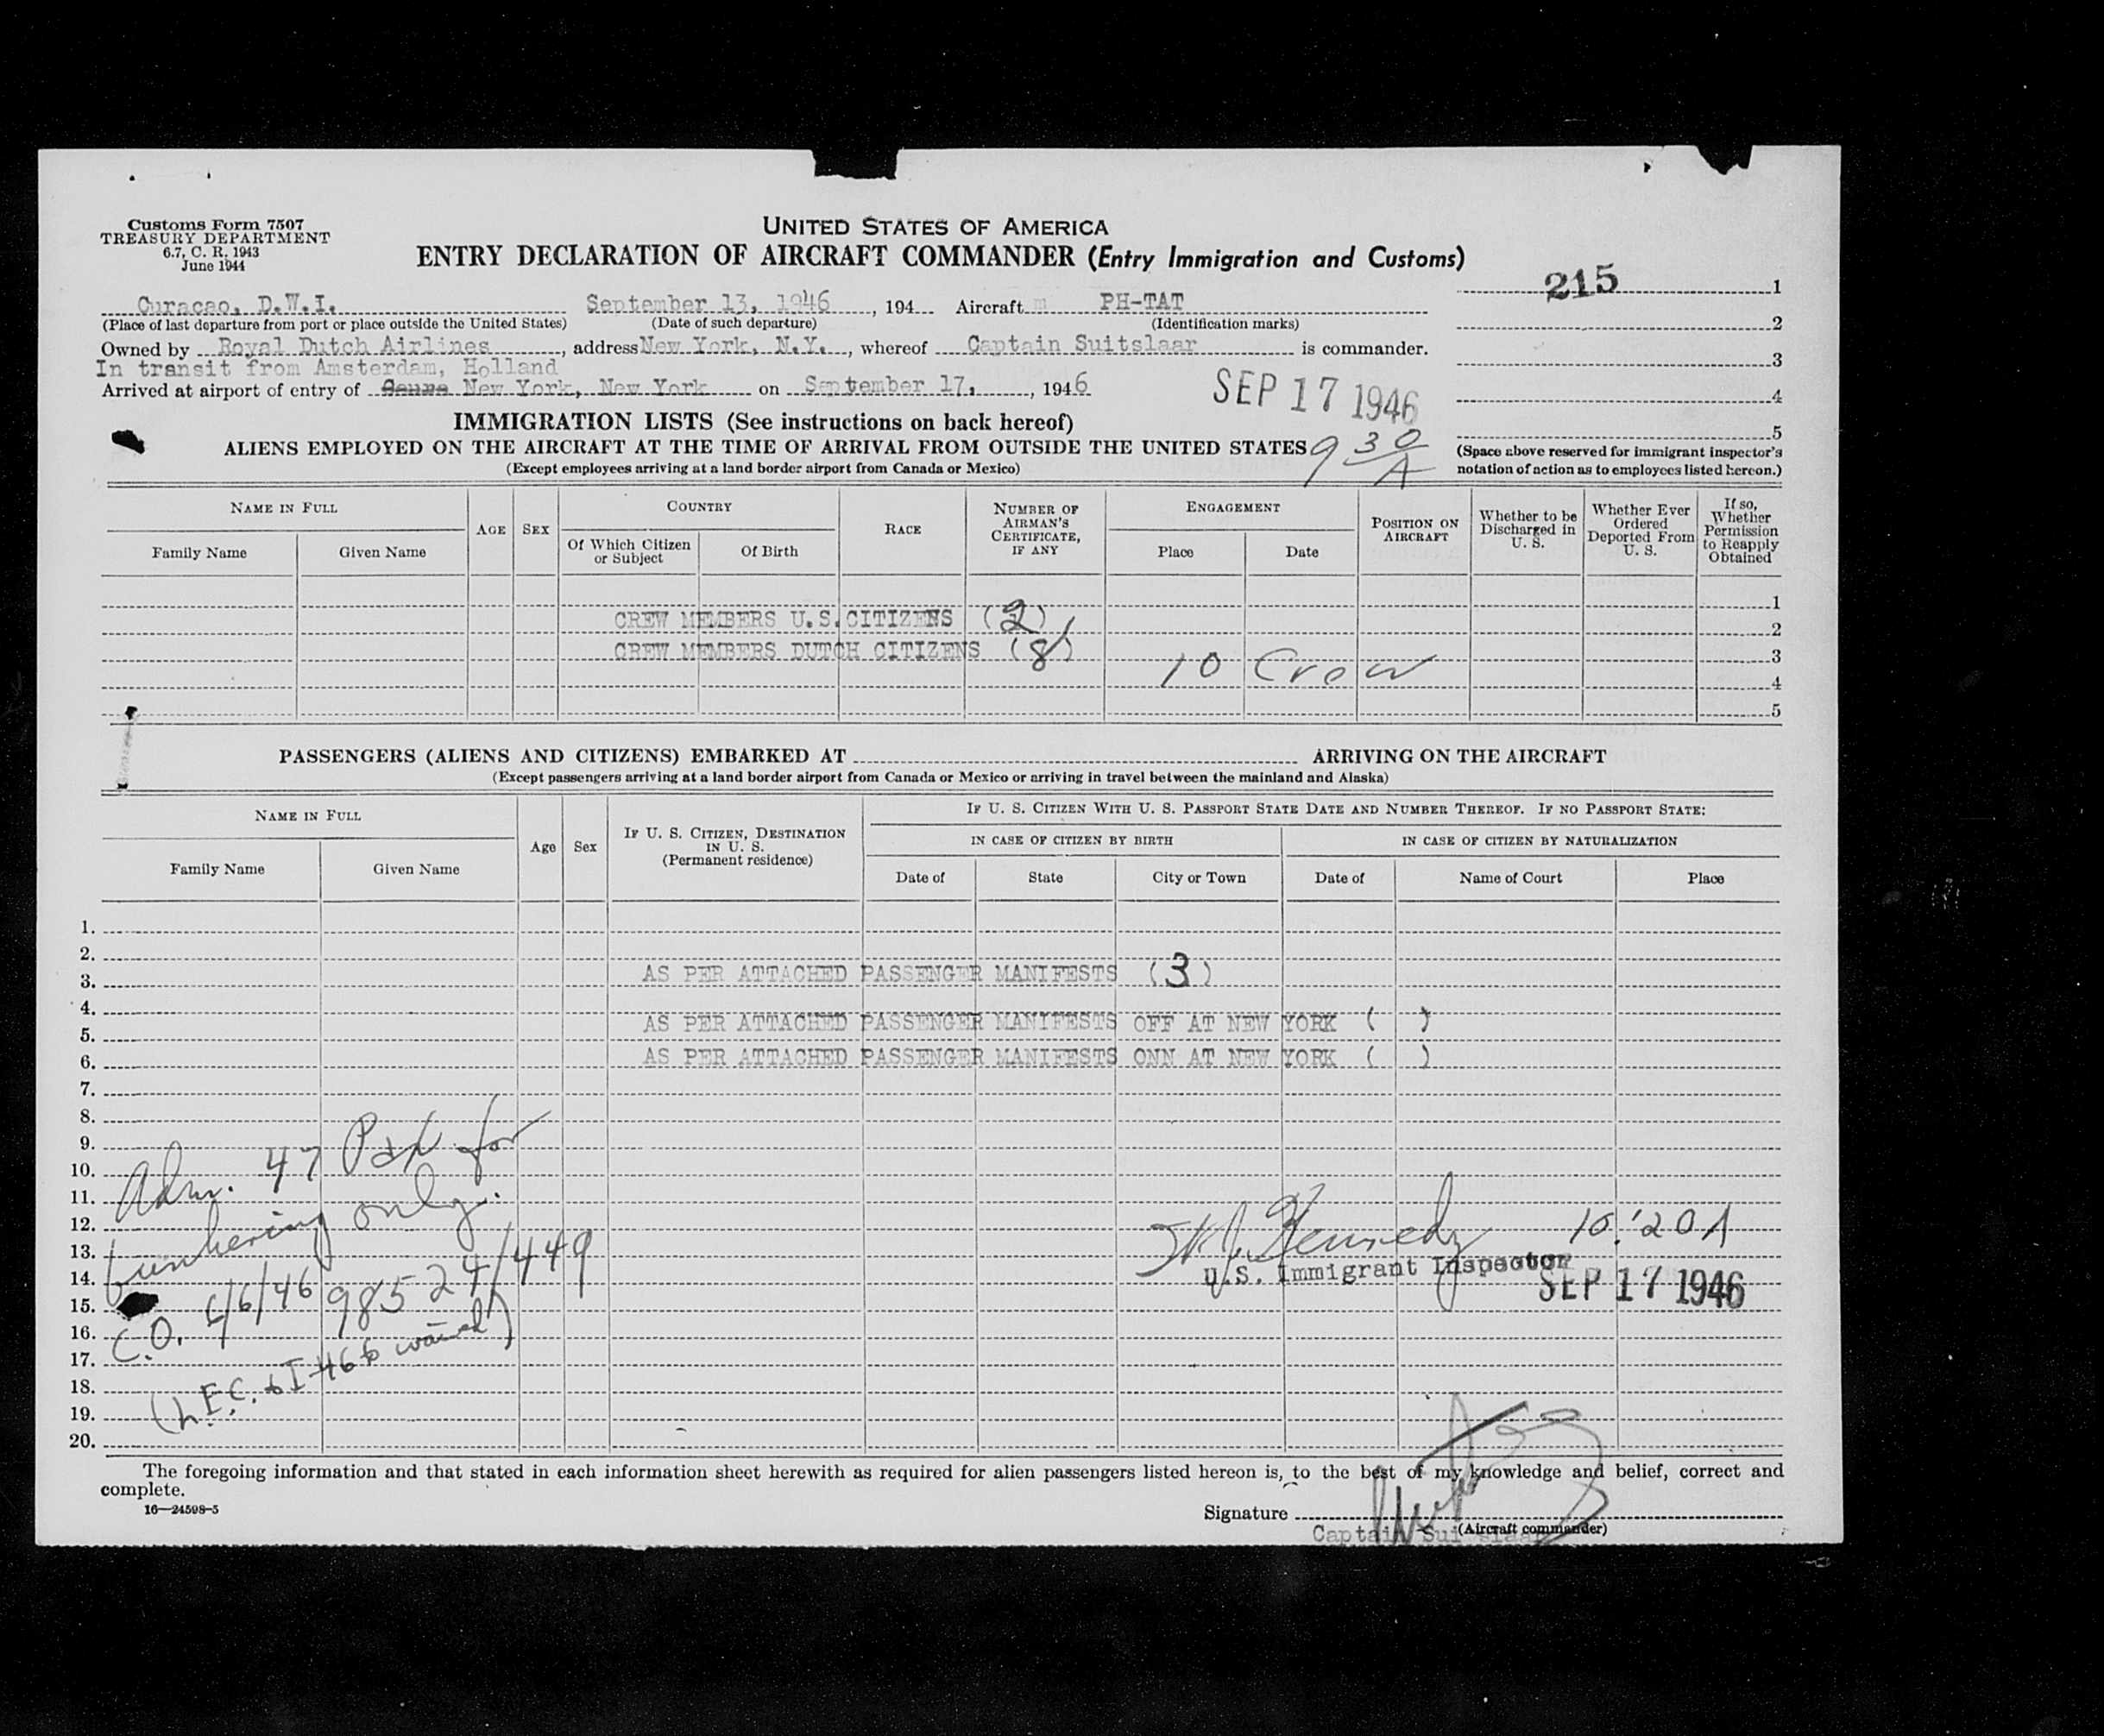 Customs Form 7507
TREASURY DEPARTMENT
6.7, C. R. 1943
June 1944
UNITED STATES OF AMERICA
ENTRY DECLARATION OF AIRCRAFT COMMANDER (Entry Immigration and Customs)
215 1
Curacao, D.W.I. September 13, 1946, 194 Aircraft PH-TAT
(Place of last departure from port or place outside the United States) (Date of such departure) (Identification marks)
2
Owned by Royal Dutch Airlines, address New York, N.Y., whereof Captain Suitslaar is commander.
3
In transit from Amsterdam, Holland
Arrived at airport of entry of New York, New York on September 17, 1946
SEP 17 1946
4
5
IMMIGRATION LISTS (See instructions on back hereof)
ALIENS EMPLOYED ON THE AIRCRAFT AT THE TIME OF ARRIVAL FROM OUTSIDE THE UNITED STATES
9 30 A
(Except employees arriving at a land border airport from Canada or Mexico)
(Space above reserved for immigrant inspector's
notation of action as to employees listed hereon.)
NAME IN FULL
Family Name
Given Name
AGE
SEX
COUNTRY
Of Which Citizen
or Subject
Of Birth
RACE
NUMBER OF
AIRMAN'S
CERTIFICATE,
IF ANY
ENGAGEMENT
Place
Date
POSITION ON
AIRCRAFT
Whether to be
Discharged in
U. S.
Whether Ever
Ordered
Deported From
U. S.
If so,
Whether
Permission
to Reapply
Obtained
1
CREW MEMBERS U.S. CITIZENS (2)
2
CREW MEMBERS DUTCH CITIZENS (8)
3
10 Crew
4
5
PASSENGERS (ALIENS AND CITIZENS) EMBARKED AT ARRIVING ON THE AIRCRAFT
(Except passengers arriving at a land border airport from Canada or Mexico or arriving in travel between the mainland and Alaska)
NAME IN FULL
Family Name
Given Name
Age
Sex
IF U. S. CITIZEN, DESTINATION
IN U. S.
(Permanent residence)
IF U. S. CITIZEN WITH U. S. PASSPORT STATE DATE AND NUMBER THEREOF. IF NO PASSPORT STATE:
IN CASE OF CITIZEN BY BIRTH
IN CASE OF CITIZEN BY NATURALIZATION
Date of
State
City or Town
Date of
Name of Court
Place
1.
2.
3. AS PER ATTACHED PASSENGER MANIFESTS (3)
4.
5. AS PER ATTACHED PASSENGER MANIFESTS OFF AT NEW YORK ( )
6. AS PER ATTACHED PASSENGER MANIFESTS ONN AT NEW YORK ( )
7.
8.
9.
10.
11.
12.
13.
14.
15.
16.
17.
18.
19.
20.
Adm. 47 Pax for
bunkering only.
C.O. 6/6/46 98524/449
Kennedy 10:20A
U.S. Immigrant Inspector
SEP 17 1946
The foregoing information and that stated in each information sheet herewith as required for alien passengers listed hereon is, to the best of my knowledge and belief, correct and
complete.
16—24598-5
Signature
(Aircraft commander)
Captain Suitslaar